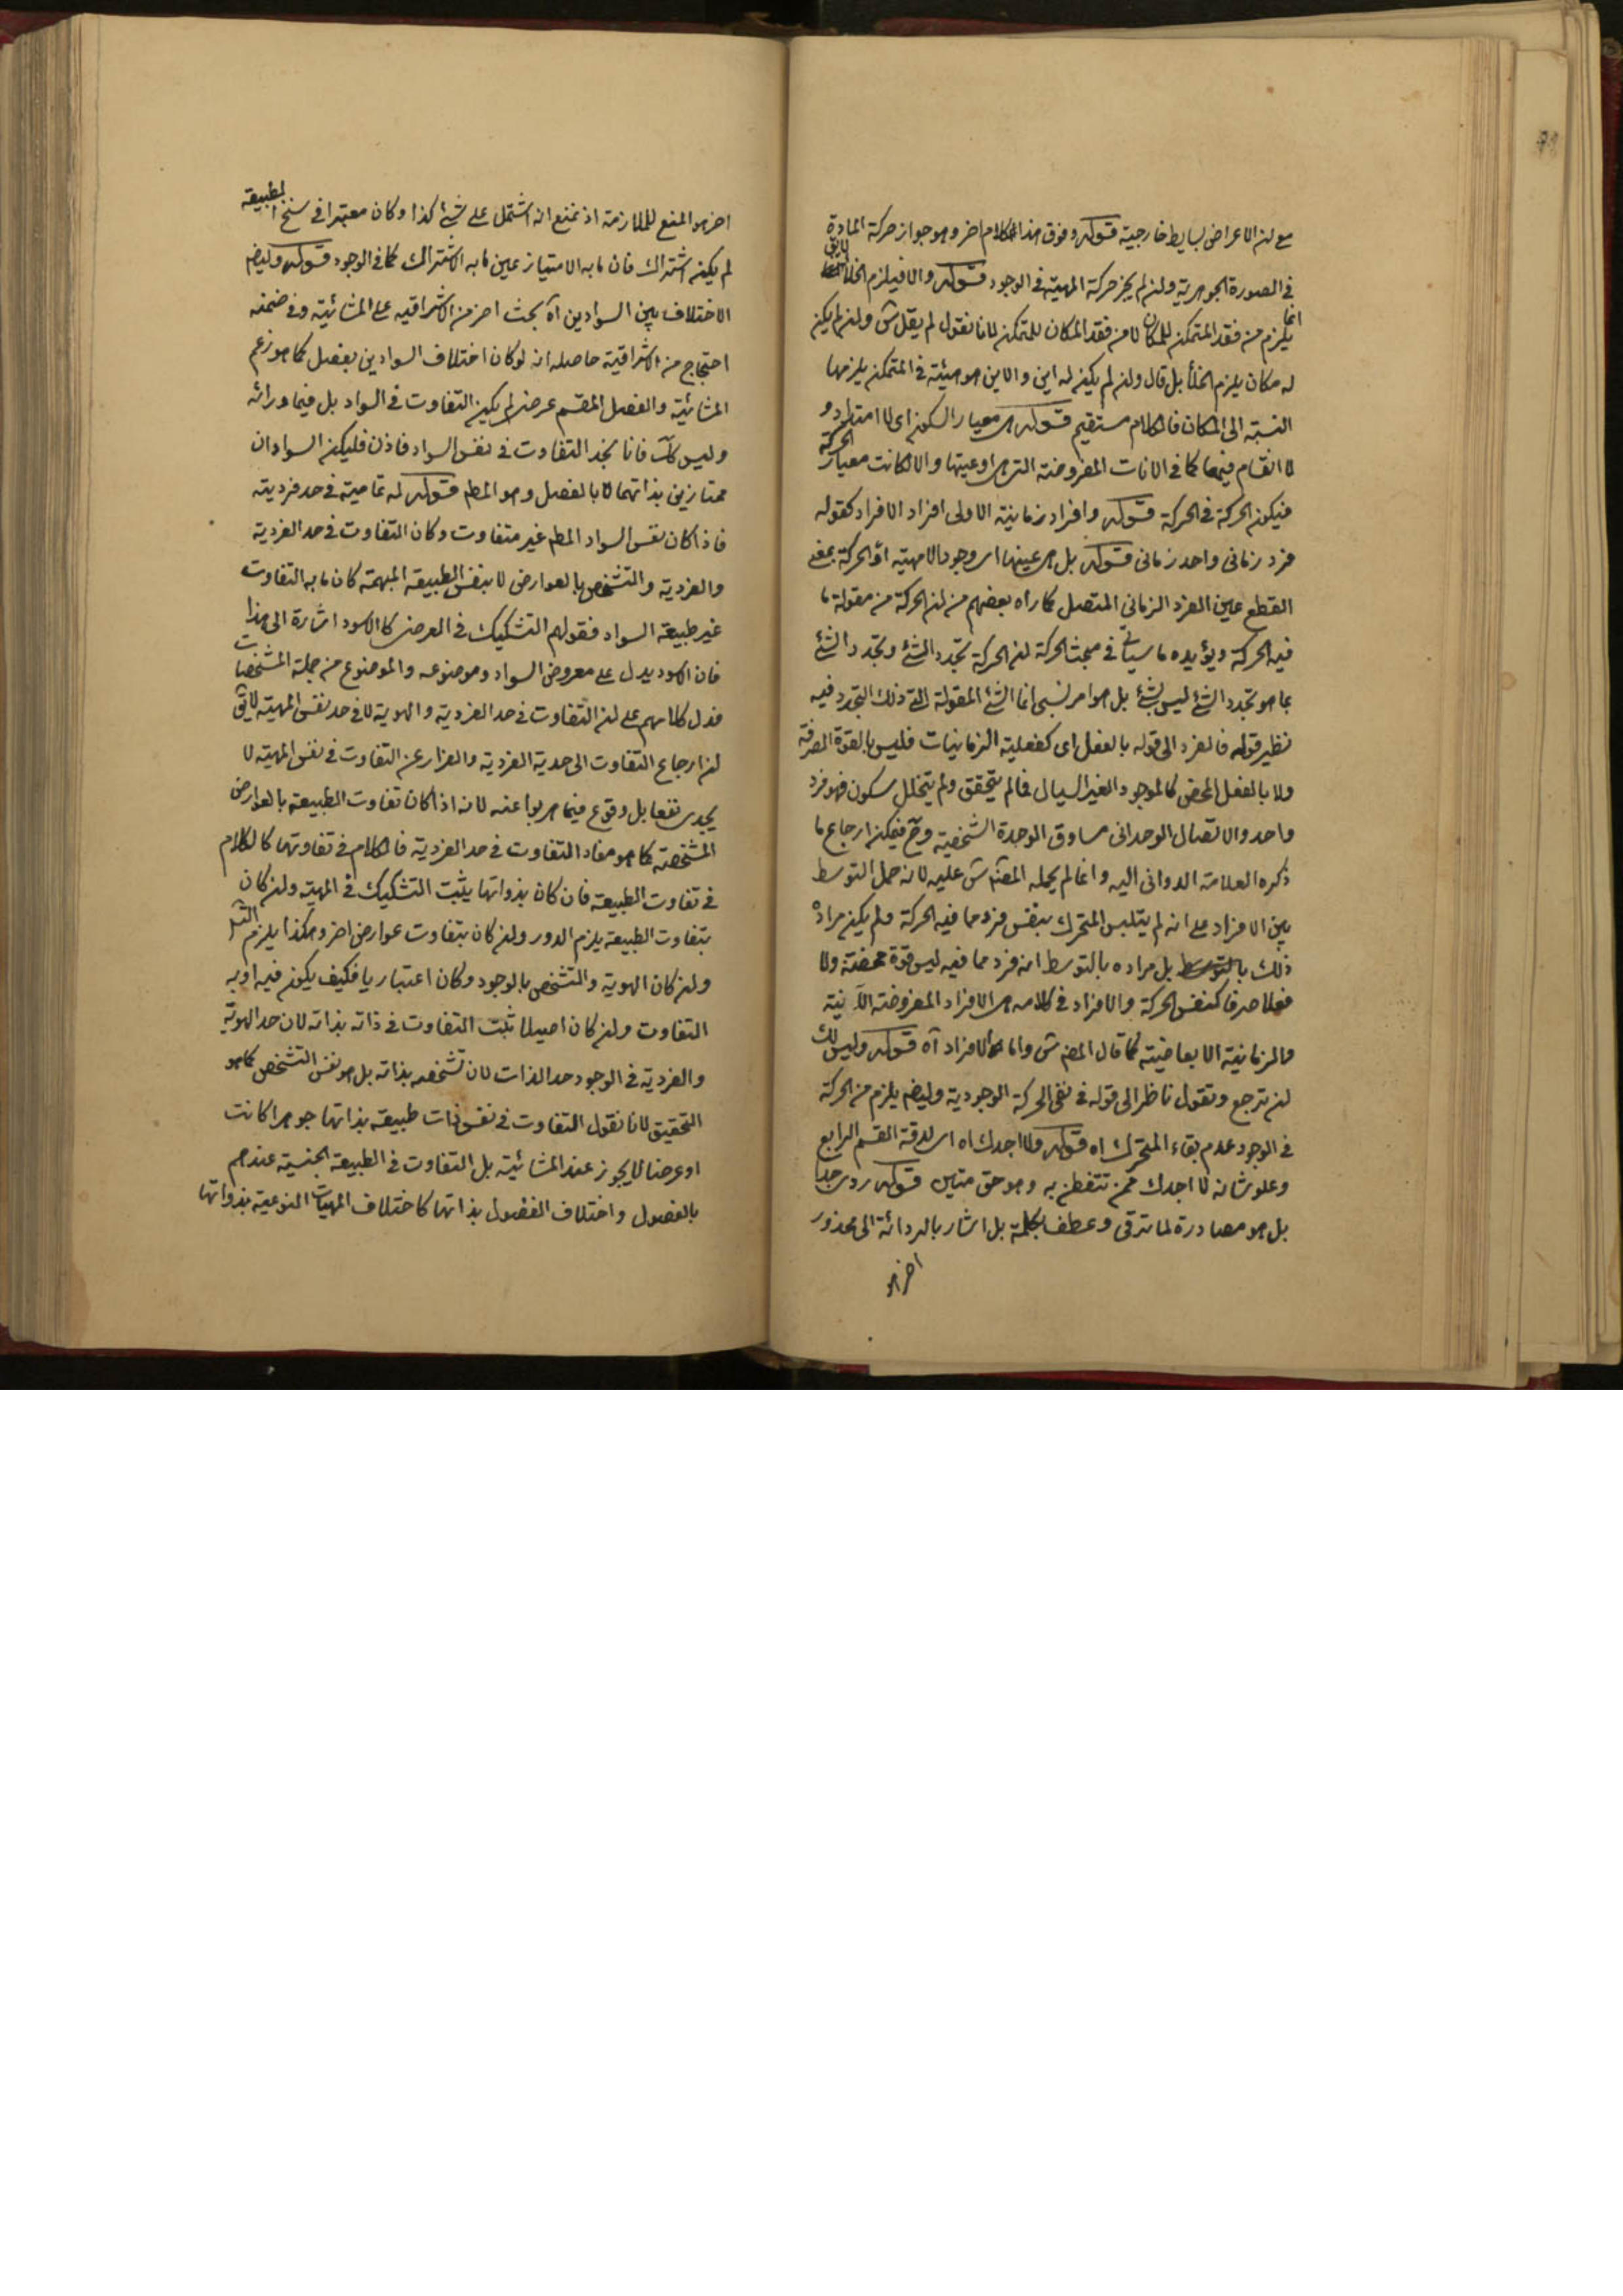 مع ان الاعراض بسايط خارجية قوله وفوق هذا الكلام اخر وهو جواز حركة المادة
في الصورة الجوهرية وان لم يجز حركة المهية في الوجود قوله والا فيلزم الخلأ لا يق
انما يلزم من فقد المتمكن للمكان لا من فقد المكان للمتمكن لانا نقول لم يقل ش وان لم يكن
له مكان يلزم الخلأ بل قال وان لم يكن له اين والاين هو هيئة في المتمكن يلزمها
النسبة الى المكان فالكلام مستقيم قوله هي معيار السكون اى لا امتداد و
لا انقسام فيها كما في الانات المفروضة التي هي اوعيتها والا لكانت معيار الحركة
فيكون الحركة في الحركة قوله وافراد زمانية الاولى افراد الافراد كقوله
فرد زمانى واحد زمانى قوله بل هي عينها اى وجودا لا مهية اذ الحركة بمعنى
القطع عين الفرد الزمانى المتصل كما راه بعضهم من ان الحركة من مقولة ما
فيه الحركة ويؤيده ما سيأتي في مبحث الحركة ان الحركة تجدد الشئ وتجدد الشئ
بما هو تجدد الشئ ليس بشئ بل هو امر نسبى انما الشئ المقولة التي ذلك التجدد فيه
نظير قوله فالفرد الى قوله بالفعل اى كفعلية الزمانيات فليس بالقوة الصرفة
ولا بالفعل المحض كالموجود الغير السيال فما لم يتحقق ولم يتخلل سكون فهو فرد
واحد والاتصال الوحدانى مساوق الوحدة الشخصية وح فيمكن ارجاع ما
ذكره العلامة الدوانى اليه وانما لم يحمله المصنف ش عليه لانه حمل التوسط
بين الافراد على انه لم يتلبس المتحرك بنفس فرد مما فيه الحركة ولم يكن مراده
ذلك بالتوسط بل مراده بالتوسط انه فرد مما فيه ليس قوة محضة ولا
فعلا صرفا كنفس الحركة والافراد في كلامه هي الافراد المفروضة الآنية
والزمانية الابعاضية كما قال المصنف ش واما الافراد آه قوله وليس لك
ان ترجع وتقول ناظر الى قوله في نفى الحركة الوجودية وايضا يلزم من الحركة
في الوجود عدم بقاء المتحرك اه قوله ولا اجدك اه اى لدقة القسم الرابع
وعلو شانه لا اجدك ممن تتفطن به وهو حق متين قوله ردى جدا
بل هو مصادرة لما ترقى وعطف بكلمة بل اشار بالردائة الى محذور
اخر هو
اخر هو المنع للملازمة اذ نمنع انه اشتمل على شئ كذا وكان معتبرا في سنخ الطبيعة
لم يكن اشتراك فان ما به الامتياز عين ما به الاشتراك كما في الوجود قوله وايضا
الاختلاف بين السوادين آه بحث اخر من الاشراقيه على المشائية وفي ضمنه
احتجاج من الاشراقية حاصله انه لو كان اختلاف السوادين بفصل كما هو زعم
المشائية والفصل المقسم عرض لم يكن التفاوت في السواد بل فيما ورائه
وليس كك فانا نجد التفاوت في نفس السواد فاذن فليكن السوادان
ممتازين بذاتهما لا بالفصل وهو المطم قوله له تمامية في حد فرديته
فاذا كان نفس السواد المطم غير متفاوت وكان التفاوت في حد الفردية
والفردية والتشخص بالعوارض لا بنفس الطبيعة المبهمة كان ما به التفاوت
غير طبيعة السواد فقولهم التشكيك في المعرض كالاسود اشارة الى هذا
فان الاسود يدل على معروض السواد وموضوعه والموضوع من جملة المشخصات
فدل كلامهم على ان التفاوت في حد الفردية والهوية لا في حد نفس المهية لا يق
ان ارجاع التفاوت الى حدية الفردية والفرار عن التفاوت في نفس المهية لا
يجدى نفعا بل وقوع فيما هربوا عنه لانه اذا كان تفاوت الطبيعة بالعوارض
المشخصة كما هو مفاد التفاوت في حد الفردية فالكلام في تفاوتها كالكلام
في تفاوت الطبيعة فان كان بذواتها يثبت التشكيك في المهية وان كان
بتفاوت الطبيعة يلزم الدور وان كان بتفاوت عوارض اخر وهكذا يلزم التس
وان كان الهوية والتشخص بالوجود وكان اعتباريا فكيف يكون فيه او به
التفاوت وان كان اصيلا ثبت التفاوت في ذاته بذاته لان حد الهوية
والفردية في الوجود حد الذات لان تشخصه بذاته بل هو نفس التشخص كما هو
التحقيق لانا نقول التفاوت في نفس ذات طبيعة بذاتها جوهرا كانت
او عرضا لا يجوز عند المشائية بل التفاوت في الطبيعة الجنسية عندهم
بالفصول واختلاف الفصول بذاتها كاختلاف المهيات النوعية بذواتها